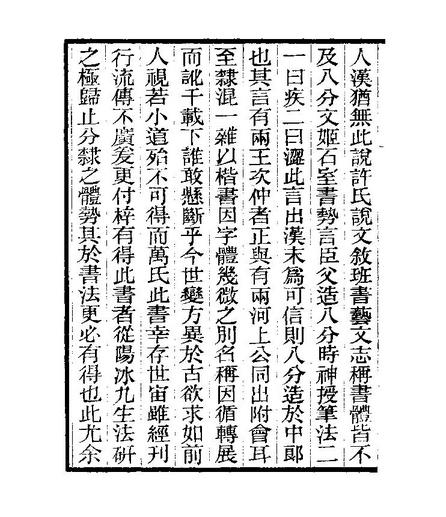 人漢猶無此說許氏說文敘班書藝文志稱書體皆不
及八分文姬石室書勢言臣父造八分時神授筆法二
一曰疾二曰澀此言出漢末為可信則八分造於中郎
也其言有兩王次仲者正與有兩河上公同出附會耳
至隸混一雜以楷書因字體幾微之別名稱因循轉展
而訛千載下誰敢懸斷乎今世變方異於古欲求如前
人視若小道殆不可得而萬氏此書幸存世宙雖經刊
行流傳不廣爰更付梓有得此書者從陽冰九生法研
之極歸止分隸之體勢其於書法更必有得也此尤余